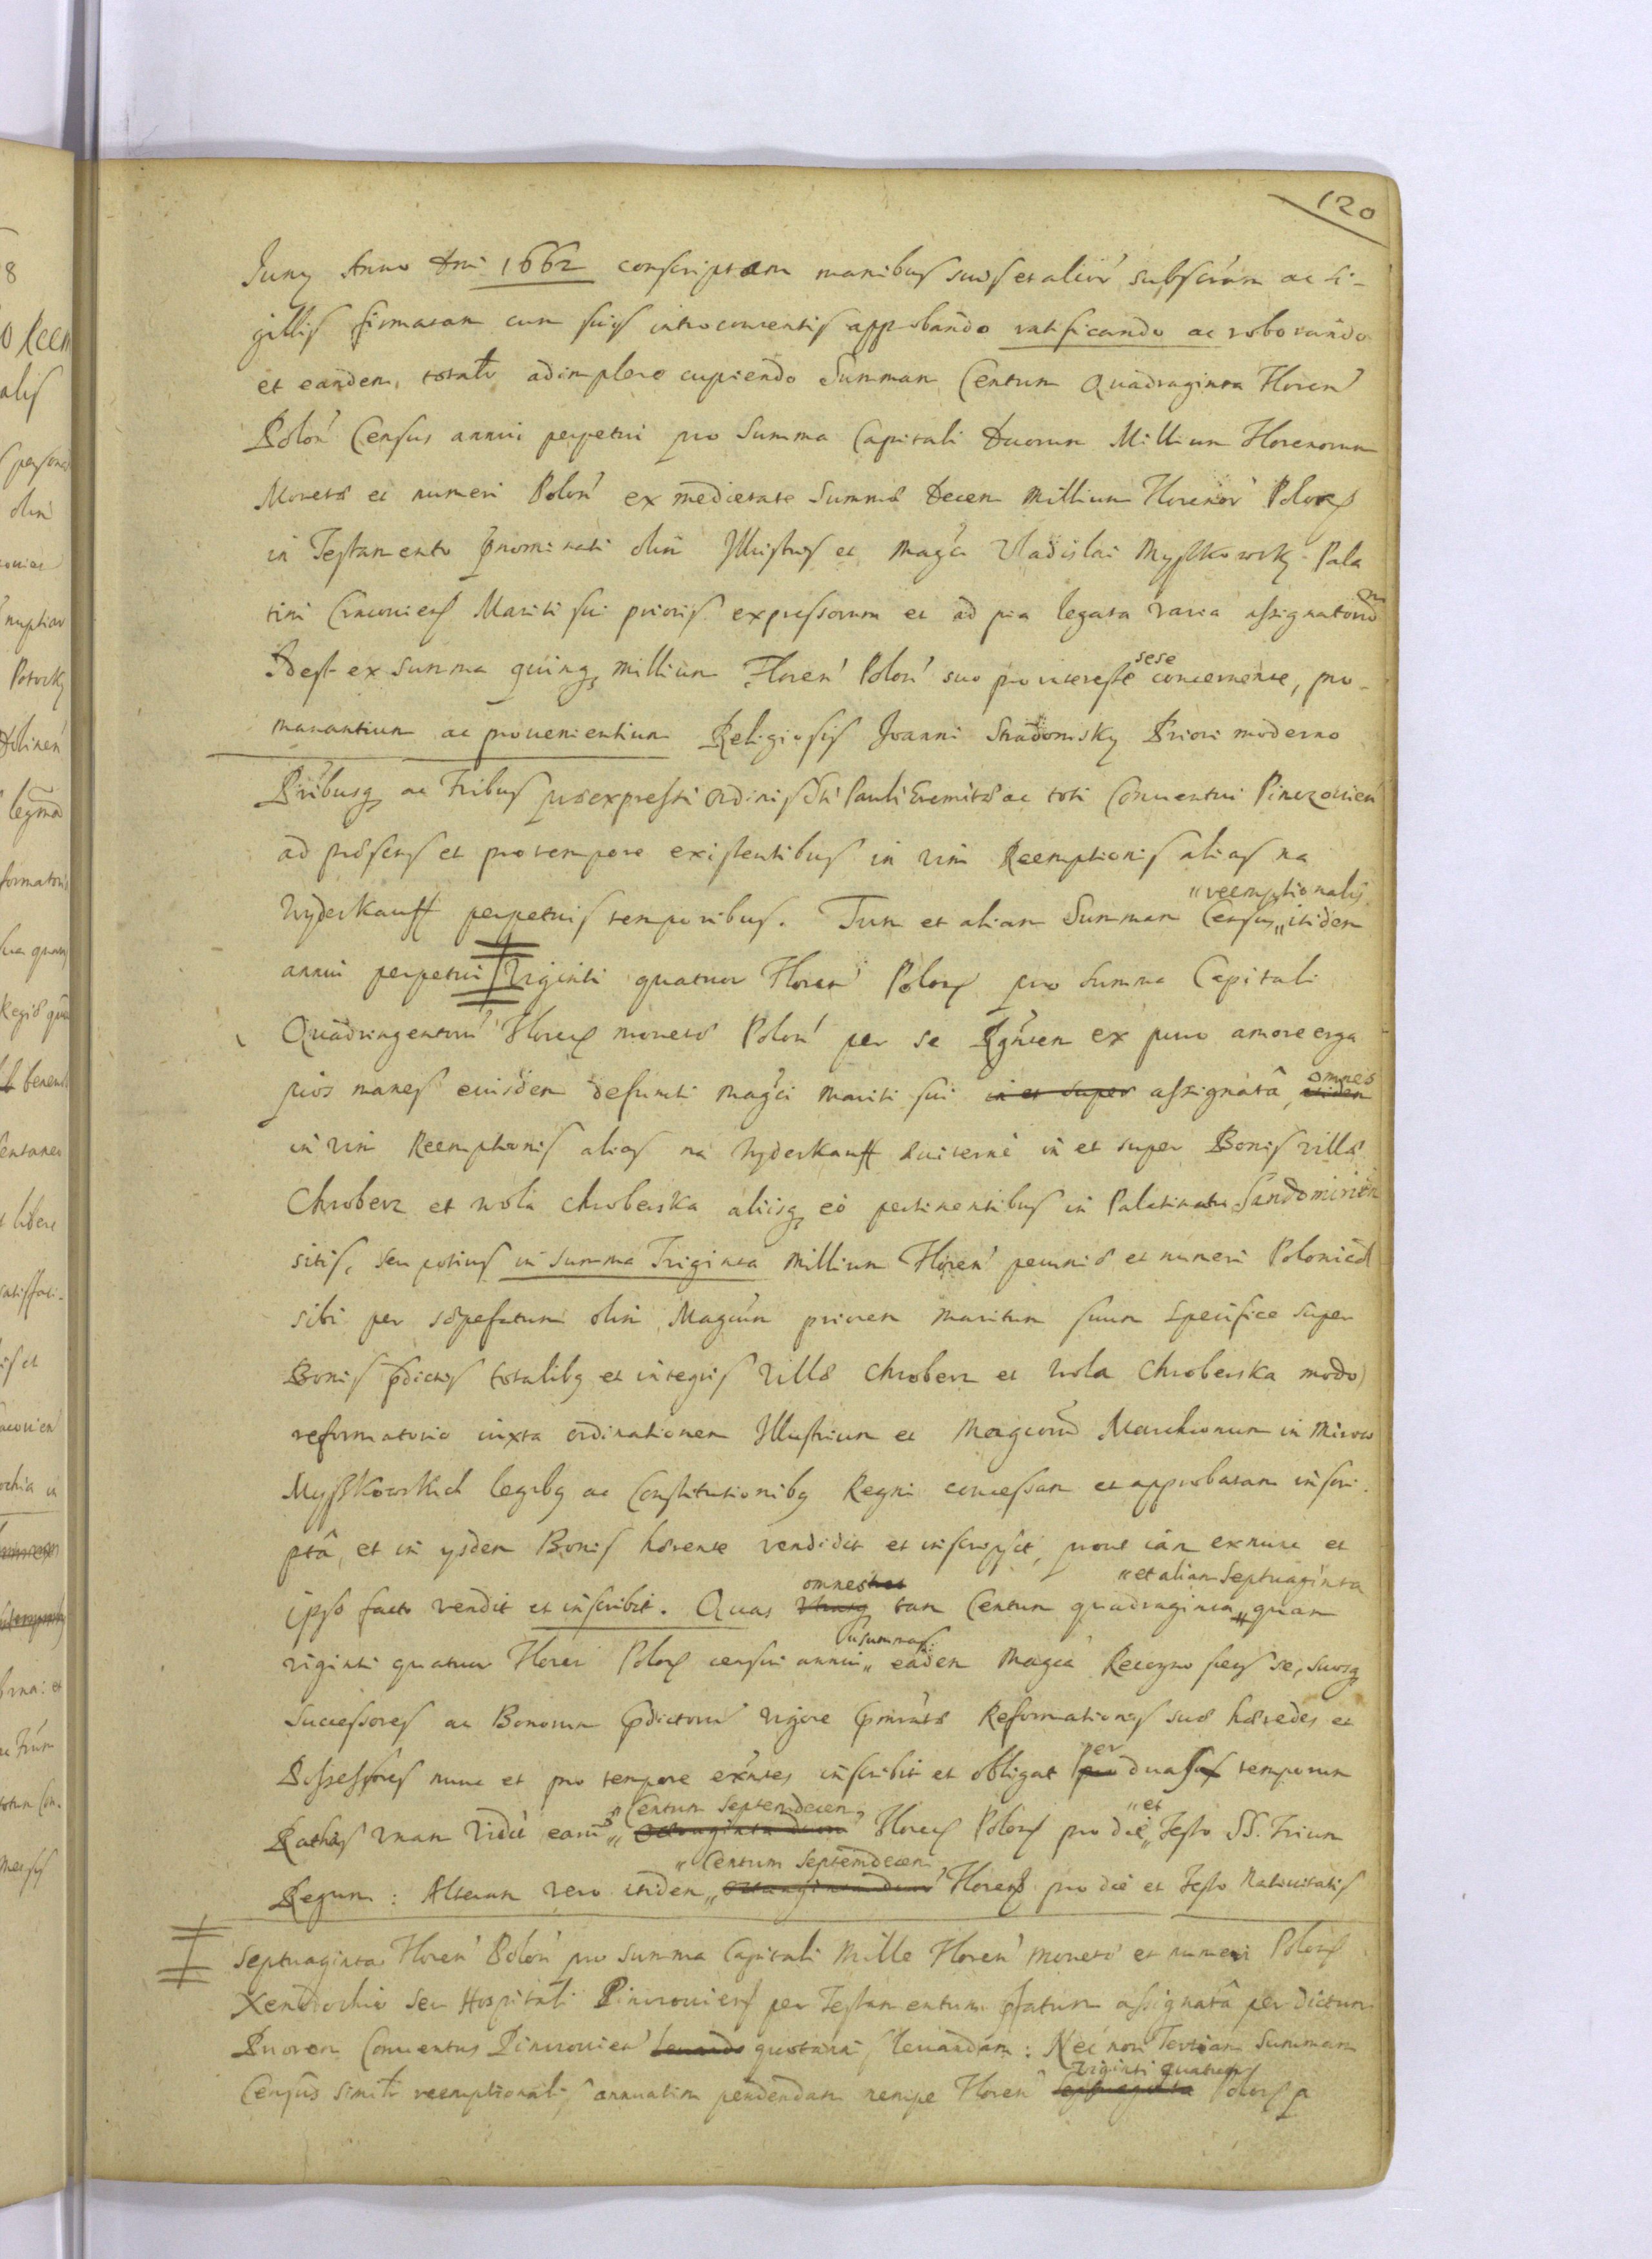 120
Juny Anno Dni 1662 conscriptam manibus suis et alior' subscriám ac si-
gillis firmatam cum suis introconventis approbando ratificando ac roborando
et eandem, totalr adimplere cupiendo Summam Centum Quadraginta Floren'
Polon' Census annui perpetui pro Summa Capitali Duorum Millium Florenorum
Moneta et numeri Polon' ex medietate Summa Decem Millium Florenor' Polon
in Testamento pnominati olim Illustris et Magci Vladislai Myszkowsky Pala
tini Cracovien Mariti sui prioris expressorum et ad pia legata varia assignatorum
Idest ex Summa quinq millium Floren' Polon' suo pro interesse sese concernente, pro-
manantium ac provenientium Religiosis Joanni Stradomsky Priori moderno
Pribusq ac Fribus præexpressi Ordinis Sti Pauli Eremitæ ac toti Conventui Pinczovien
ad præsens et pro tempore existentibus in vim Reemptionis alias na
Wyderkauff perpetuis temporibus. Tum et aliam Summam Census "reemptionalis itidem
annui perpetui Viginti quatuor Floren' Polon pro Summa Capitali
Quadringentoru' Floren monetæ Polon' per se Rgnicen ex puro amore erga
pios manes eiusdem defuncti Magci Mariti sui in et super assignatâ, itidem omnes
in vim Reemptionis alias na Wyderkauff in et super Bonis villæ
Chroberz et Wola Chroberska aliisq eò pertinentibus in Palatinatu Sandomirien
sitis, seu potius in Summa Triginta millium Floren' pecuniæ et numeri Polonical
sibi per sæpefatum olim Magcum priorem Maritum suum specifice super
Bonis pdictis totalibq et integris Villæ Chroberz et Wola Chroberska modo
reformatorio iuxta ordinationem Illustrium et Magcorum Marchionum in Mirow
Myszkowskich legibq ac Constitutionibq Regni concessam et approbatam inscri-
ptâ, et in ysdem Bonis hærente vendidit et inscripsit, prout iam ex nunc et
ipso facto vendit et inscribit. Quas omnes tam Centum quadraginta "et aliam Septuaginta quam
viginti quatuor Floren Polon census annui "summas eadem Magca Recogno scens se, suosq
Successores ac Bonorum pdictoru' vigore pmissæ Reformationis suæ hæredes et
Possessores nunc et pro tempore exntes inscribit et obligat per duas temporum
Rathas vnam vidlt earu' "Centum Septemdecem Floren Polon pro die "et Festo SS. Trium
Regum: Alteram vero itidem "Centum Septemdecem Floren pro die et Festo Nativitatis
Septuaginta Floren' Polon' pro Summa Capitali Mille Floren' monetæ et numeri Polon
Xenodochio seu Hospitali Pinczovien per Testamentum pfatum assignatâ per dictum
Priorem Conventus Pinczovien' levando quotanni levandam: Nec non Tertiam Summam
Census similr reemptionalis annuatim pendendam nempe Floren' septuaginta Viginti quatuor Polon p